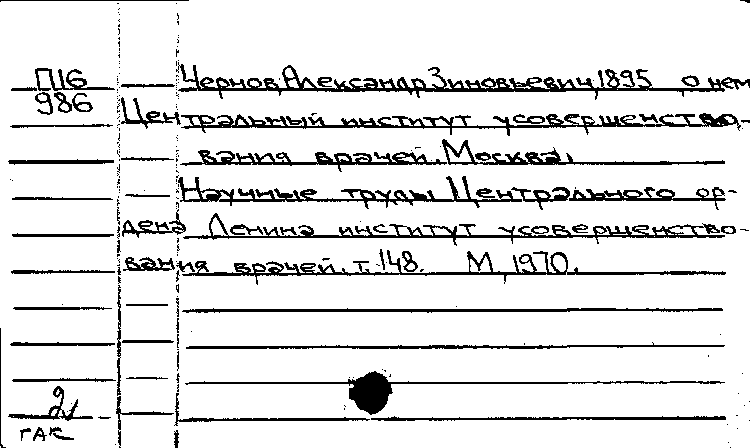 П16 Чернов, Александр Зиновьевич, 1895 о нем
986 Центральный институт усовершенство-
вания врачей. Москва.
Научные труды Центрального ор-
дена Ленина институт усовершенство-
вания врачей. т. 148. М, 1970.
2
ГАК